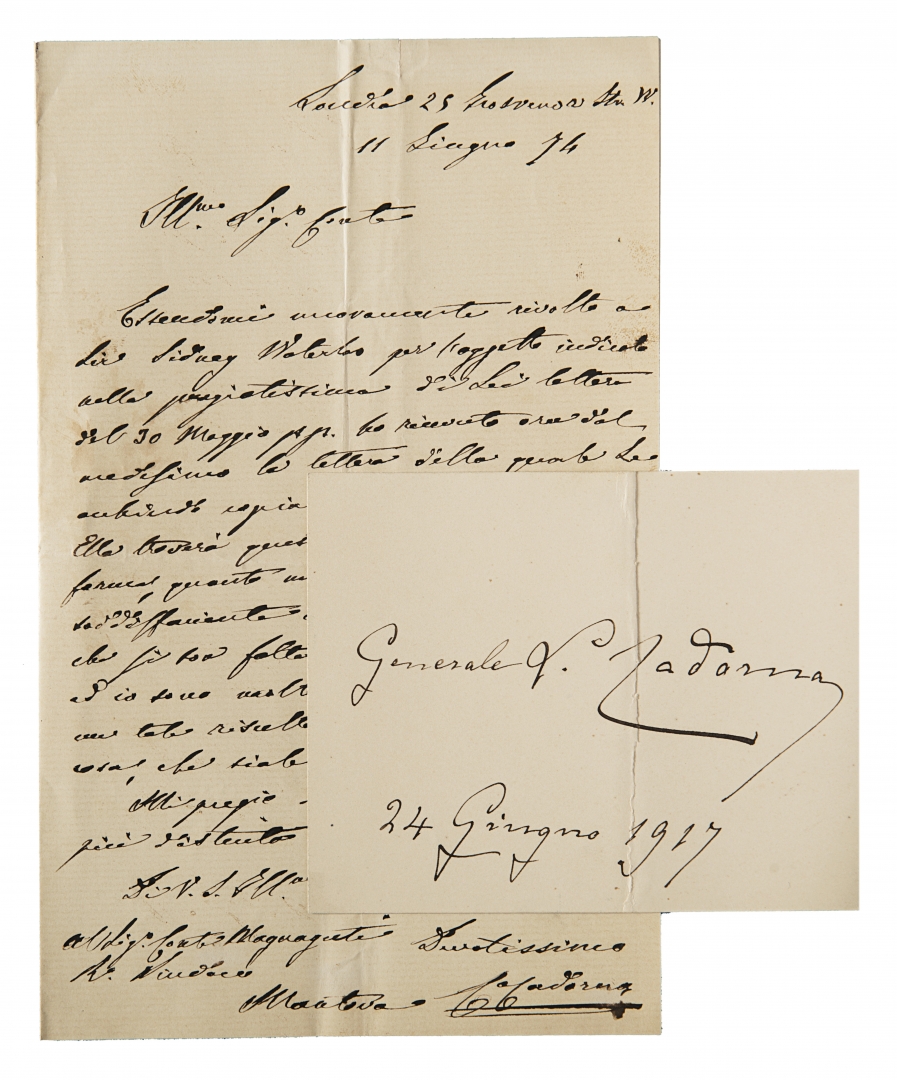 Londra 25 Grosvenor Str. W.
11 Giugno 74
Ill.mo Sig.r Conte
Essendomi nuovamente rivolto a
Sir Sidney Waterloo per l'oggetto indicato
nella pregiatissima di Lei lettera
del 30 Maggio p.p. ho ricevuto ora dal
medesimo la lettera della quale Le
copia
Ella troverà
forma, quanto
soddisfacente
che si son fatte
ed io sono
un tale
cosa, che
Mi pregio
più distinta
Di V. S. Ill.a
al Sig.r Conte Magnaguti
R.o Sindaco
Mantova
Devotissimo
C Cadorna
Generale L. Cadorna
24 Giugno 1917